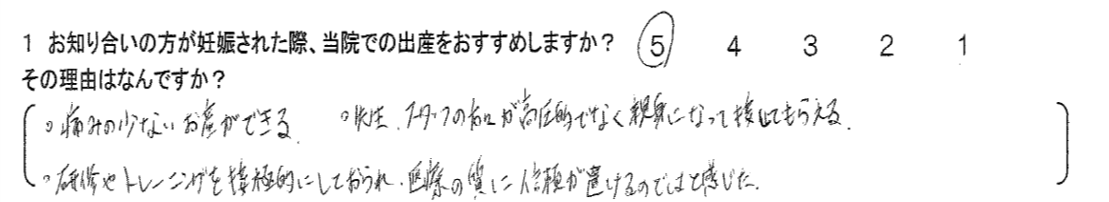 1 お知り合いの方が妊娠された際、当院での出産をおすすめしますか？ 5 4 3 2 1
その理由はなんですか？
。痛みの少ないお産ができる。 。先生、スタッフの方々が高圧的でなく親身になって接してもらえる。
。研修やトレーニングを積極的にしておられ、医療の質に信頼が置けるのではと感じた。